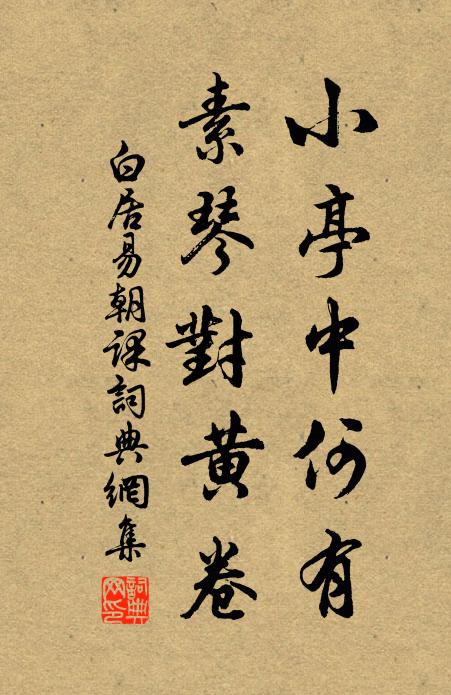 小亭中何有
素琴對黄卷
白居易朝課詞典網集
詞典網印